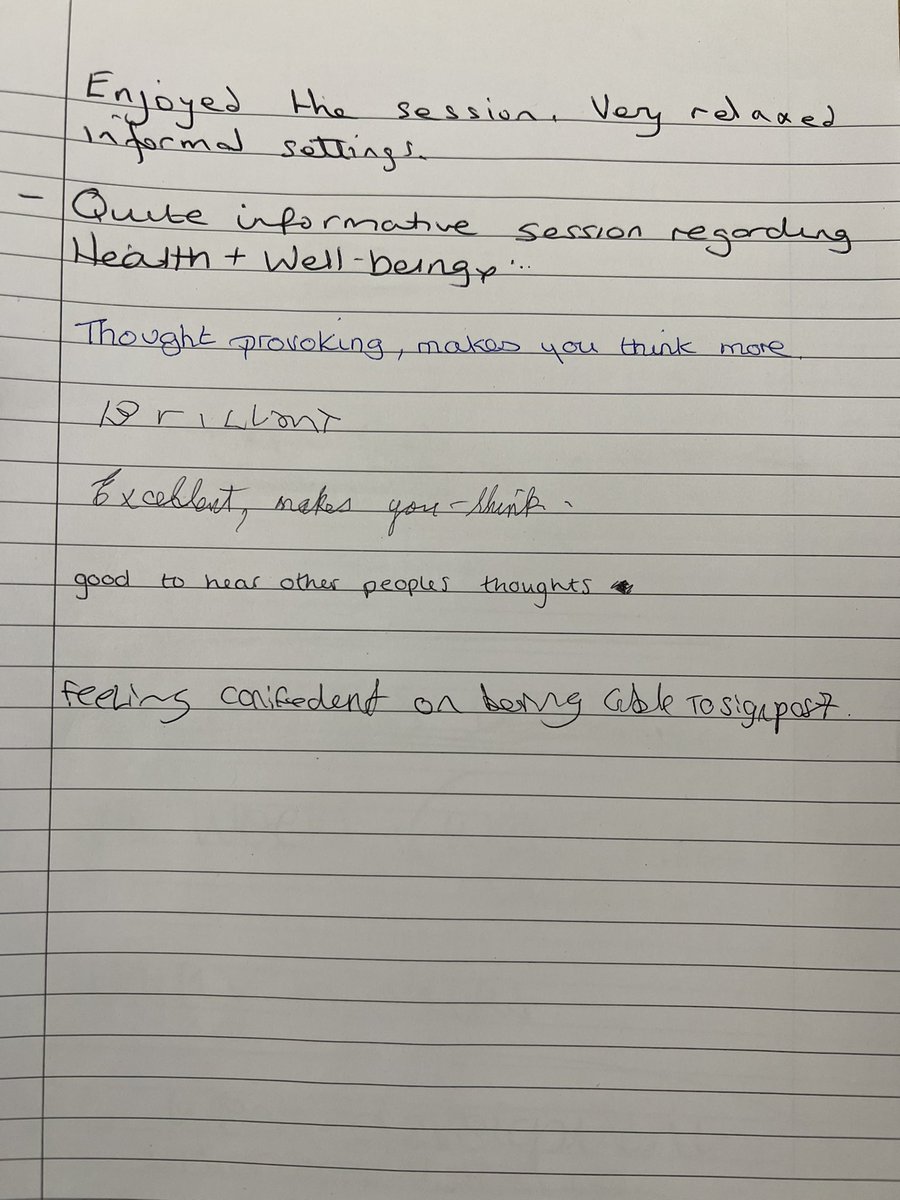 Enjoyed the session. Very relaxed
informal settings.
- Quite informative session regarding
Health + Well-being,...
Thought provoking, makes you think more.
Brillant
Excellent, makes you think.
good to hear other peoples thoughts
feeling confedent on being able To signpost.